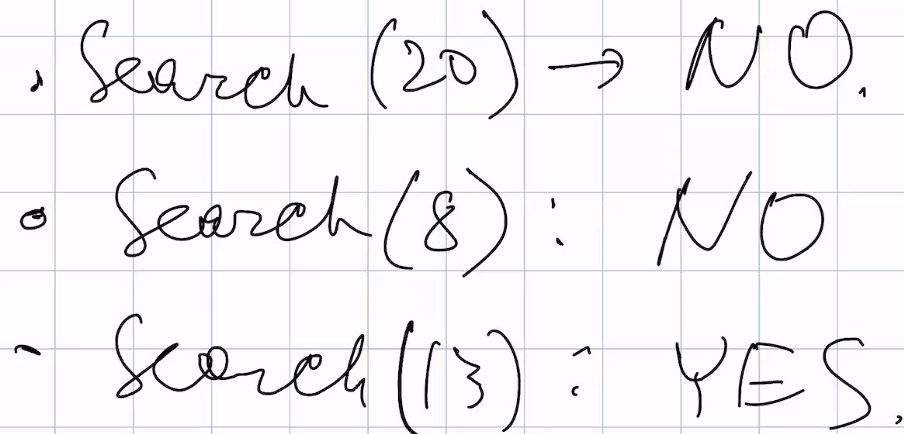 . Search (20) → NO.
• Search (8) : NO
- Search (13) : YES.